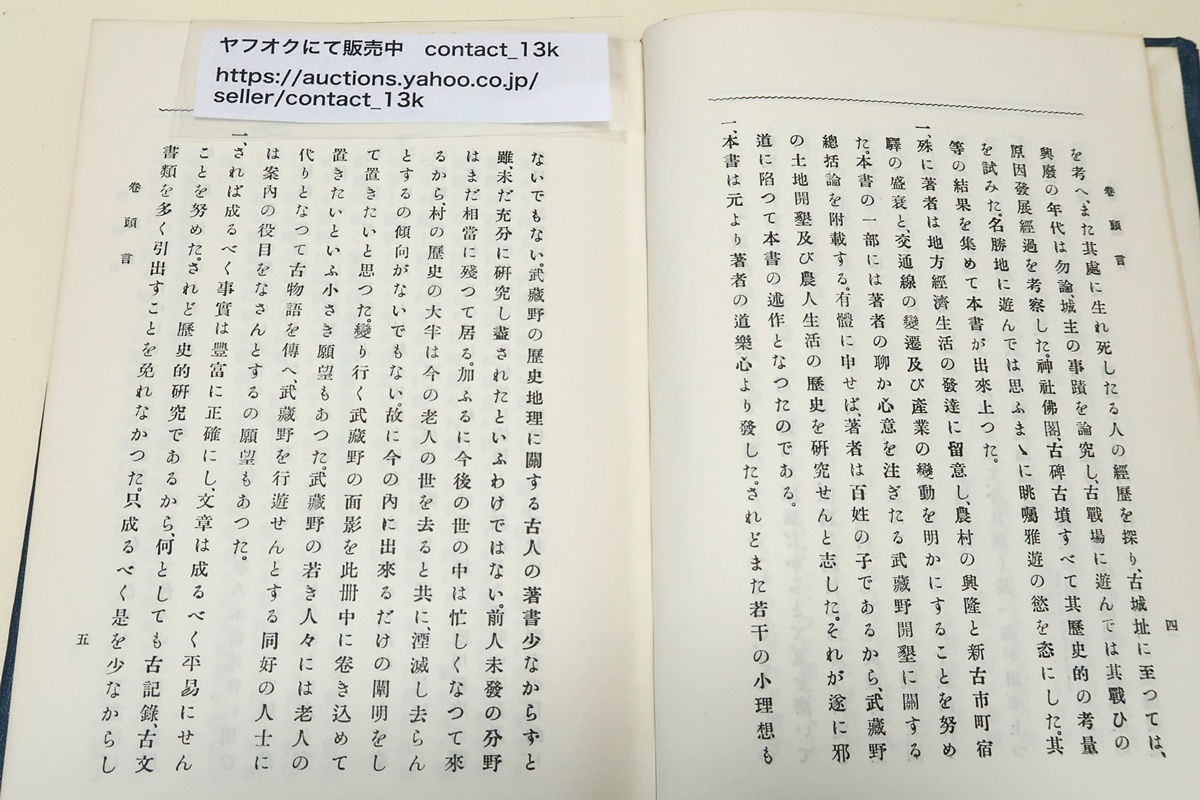 ヤフオクにて販売中 contact_13k
https://auctions.yahoo.co.jp/
seller/contact_13k
卷頭言
四
を考へ、また其處に生れ死したる人の經歷を探り、古城址に至つては、
興廢の年代は勿論、城主の事蹟を論究し、古戰場に遊んでは其戰ひの
原因發展經過を考察した。神社佛閣、古碑古墳すべて其歷史的の考量
を試みた。名勝地に遊んでは思ふまゝに眺囑雅遊の慾を恣にした。其
等の結果を集めて本書が出來上つた。
一、殊に著者は地方經濟生活の發達に留意し、農村の興隆と新古市町宿
驛の盛衰と、交通線の變遷及び產業の變動を明かにすることを努め
た。本書の一部には著者の聊か心意を注ぎたる武藏野開墾に關する
總括論を附載する。有體に申せば、著者は百姓の子であるから、武藏野
の土地開墾及び農人生活の歷史を硏究せんと志した。それが遂に邪
道に陷つて本書の述作となつたのである。
一、本書は元より著者の道樂心より發した。されどまた若干の小理想も
ないでもない。武藏野の歷史地理に關する古人の著書少なからずと
雖、未だ充分に硏究し盡されたといふわけではない。前人未發の分野
はまだ相當に殘つて居る。加ふるに今後の世の中は忙しくなつて來
るから、村の歷史の大半は今の老人の世を去ると共に、湮滅し去らん
とするの傾向がないでもない。故に今の內に出來るだけの闡明をし
て置きたいと思つた。變り行く武藏野の面影を此册中に卷き込めて
置きたいといふ小さき願望もあつた。武藏野の若き人々には老人の
代りとなつて古物語を傳へ、武藏野を行遊せんとする同好の人士に
は案內の役目をなさんとするの願望もあつた。
一、されば成るべく事實は豐富に正確にし、文章は成るべく平易にせん
ことを努めた。されど歷史的硏究であるから、何としても古記錄、古文
書類を多く引出すことを免れなかつた。只成るべく是を少なからし
卷頭言
五